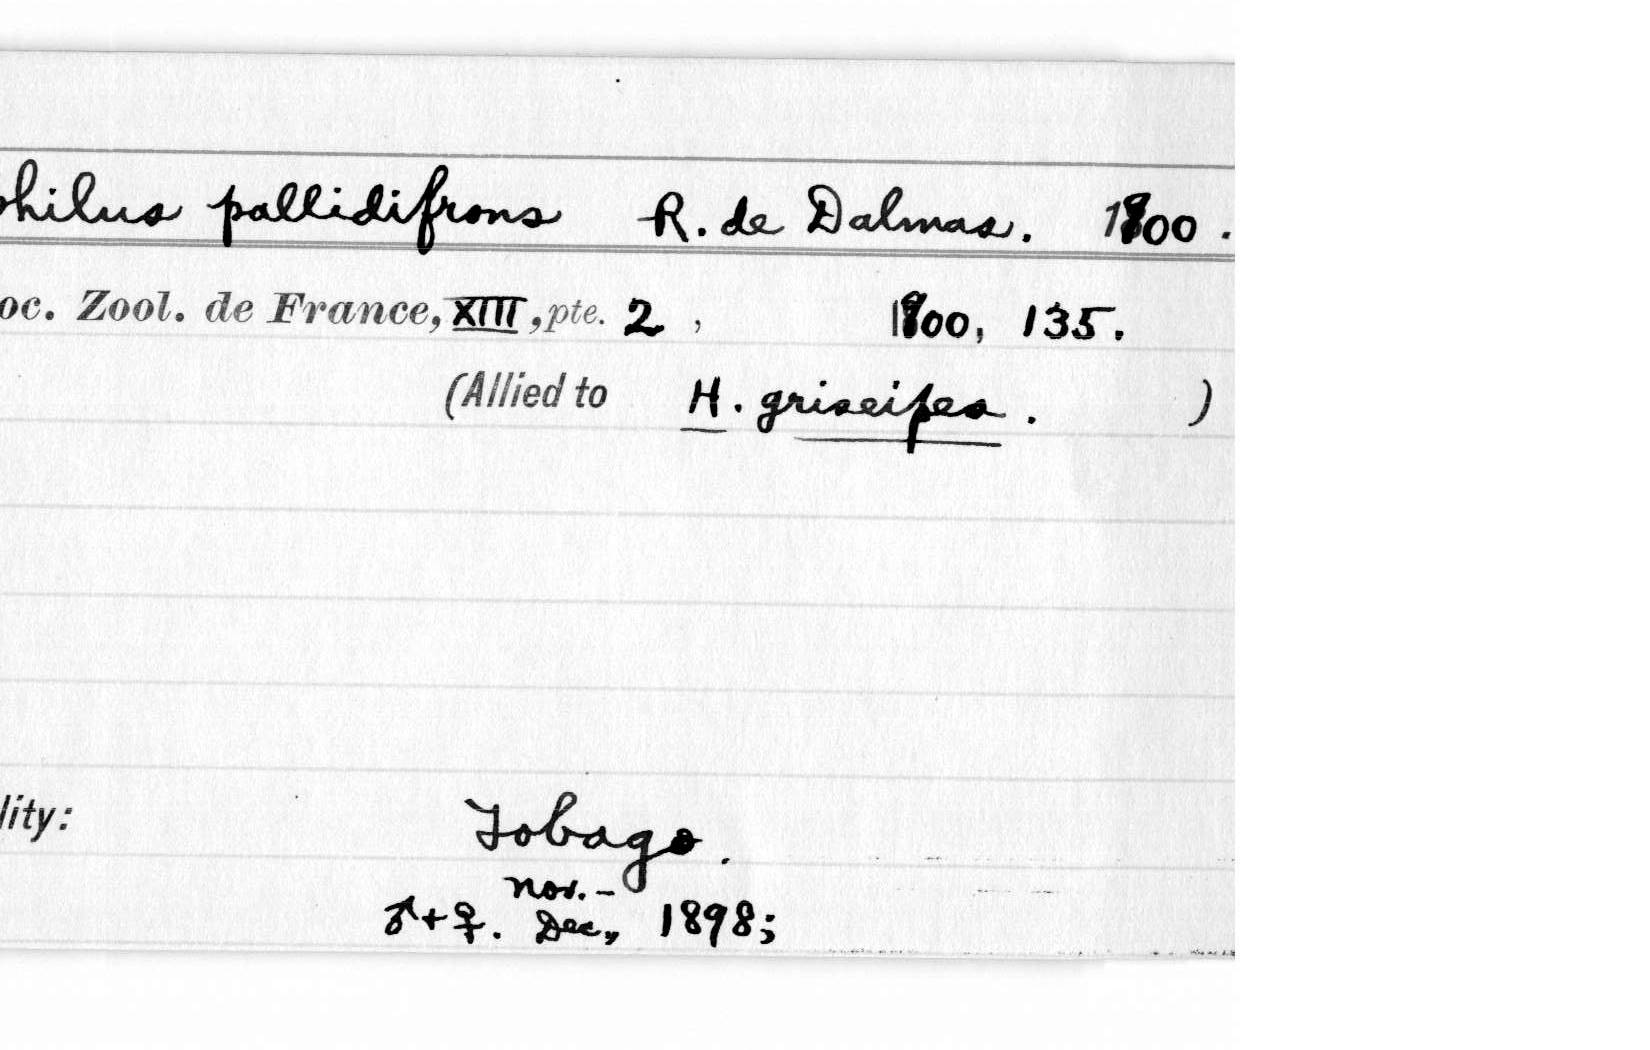 philus pallidifrons R. de Dalmas. 1900.
oc. Zool. de France, XIII, pte. 2, 1900, 135.
(Allied to H. griseipes. )
lity: Tobago.
Nov. -
♂+♀. Dec., 1898;